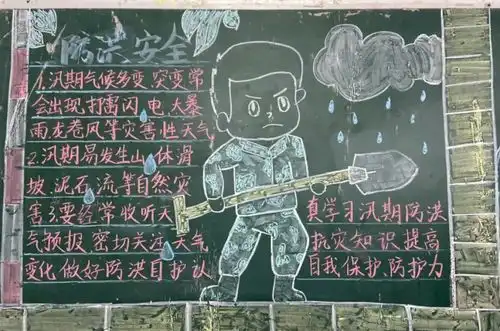 防洪安全
1.汛期气候多变,突变常
会出现打雷闪电大暴
雨龙卷风等灾害性天气
2.汛期易发生山体滑
坡、泥石流等自然灾
害3.要经常收听天
气预报密切关注天气
变化做好防洪自护认
真学习汛期防洪
抗灾知识提高
自我保护、防护力